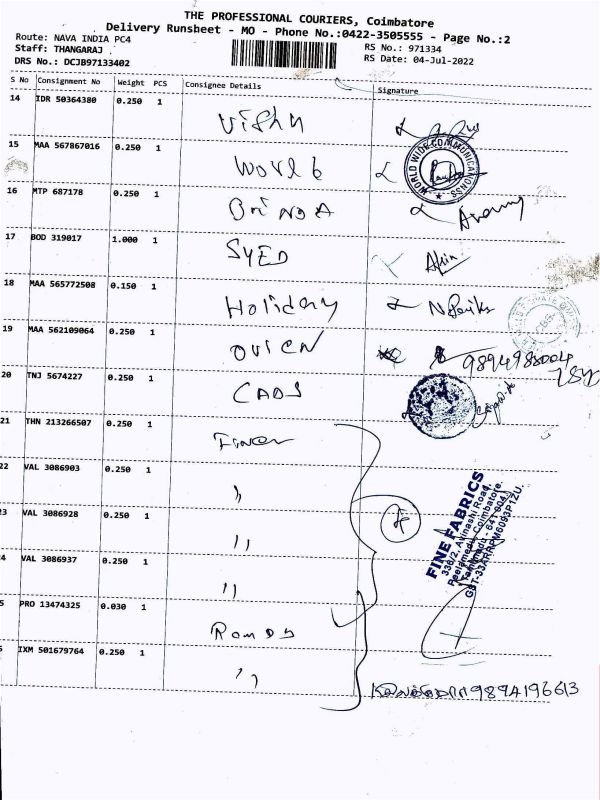 THE PROFESSIONAL COURIERS, Coimbatore
Delivery Runsheet - MO - Phone No.:0422-3505555 - Page No.:2
Route: NAVA INDIA PC4
RS No.: 971334
Staff: THANGARAJ
RS Date: 04-Jul-2022
DRS No.: DCJB97133402
S No Consignment No Weight PCS Consignee Details Signature
14 IDR 50364380 0.250 1
Vishu
15 MAA 567867016 0.250 1
World
WORLD WIDE COMMUNICATIONSS
16 MTP 687178 0.250 1
BrindA
17 BOD 319017 1.000 1
SYED
18 MAA 565772508 0.150 1
Holiday
19 MAA 562109064 0.250 1
9894988004
20 TNJ 5674227 0.250 1
CADS
21 THN 213266507 0.250 1
22 VAL 3086903 0.250 1
FINE FABRICS
336/2, Avinashi Road,
Peelamedu, Coimbatore,
Tamilnadu - 641 004.
GST-33ARRPM6093P1ZU.
3 VAL 3086928 0.250 1
"
4 VAL 3086937 0.250 1
"
5 PRO 13474325 0.030 1
6 IXM 501679764 0.250 1
"
9894196613